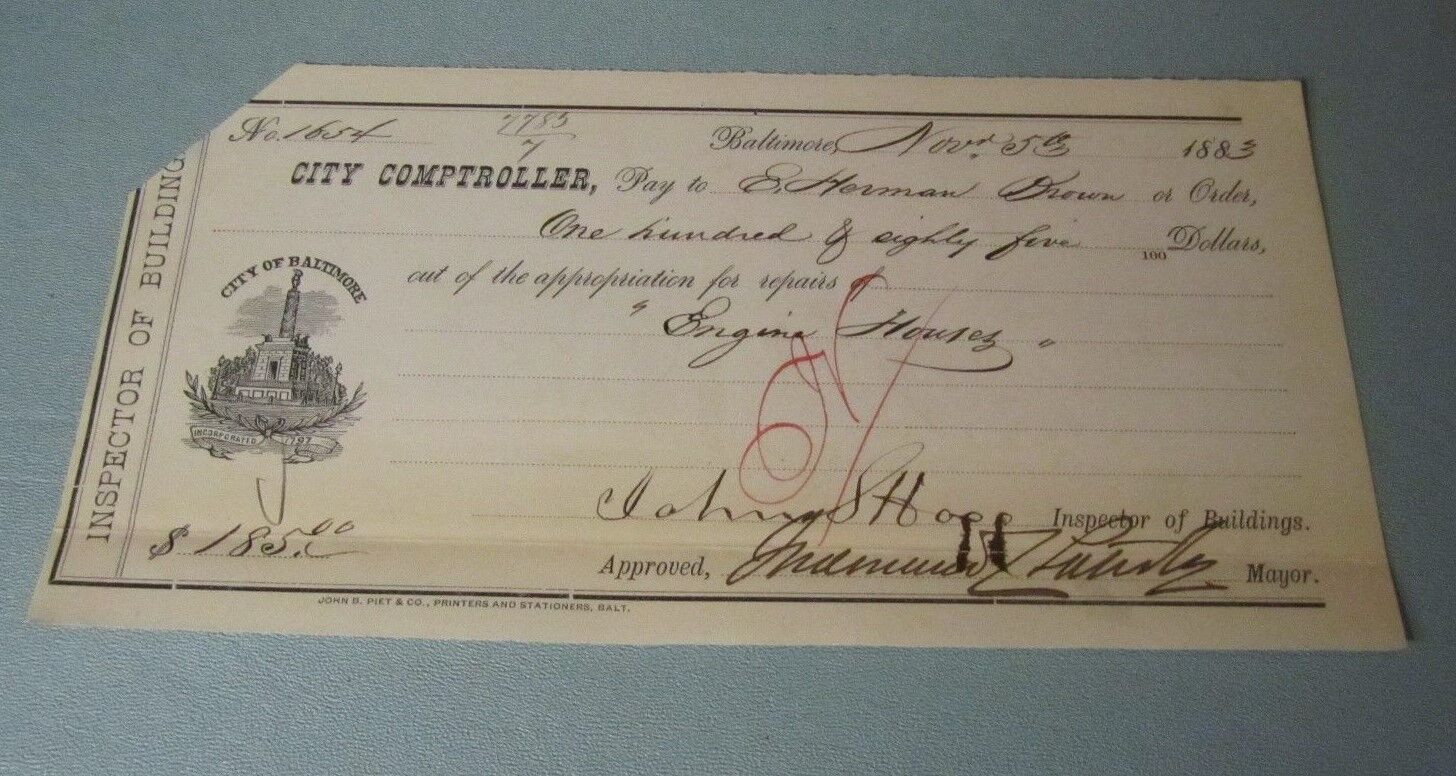 No. 1654
7783
7
Baltimore, Novr. 5th 1883
CITY COMPTROLLER, Pay to E. Herman Brown or Order,
One hundred & eighty five 100 Dollars,
out of the appropriation for repairs of
" Engine Houses "
CITY OF BALTIMORE
INCORPORATED 1797
INSPECTOR OF BUILDING
$ 185.00
John Inspector of Buildings.
Approved, Mayor.
JOHN B. PIET & CO., PRINTERS AND STATIONERS, BALT.